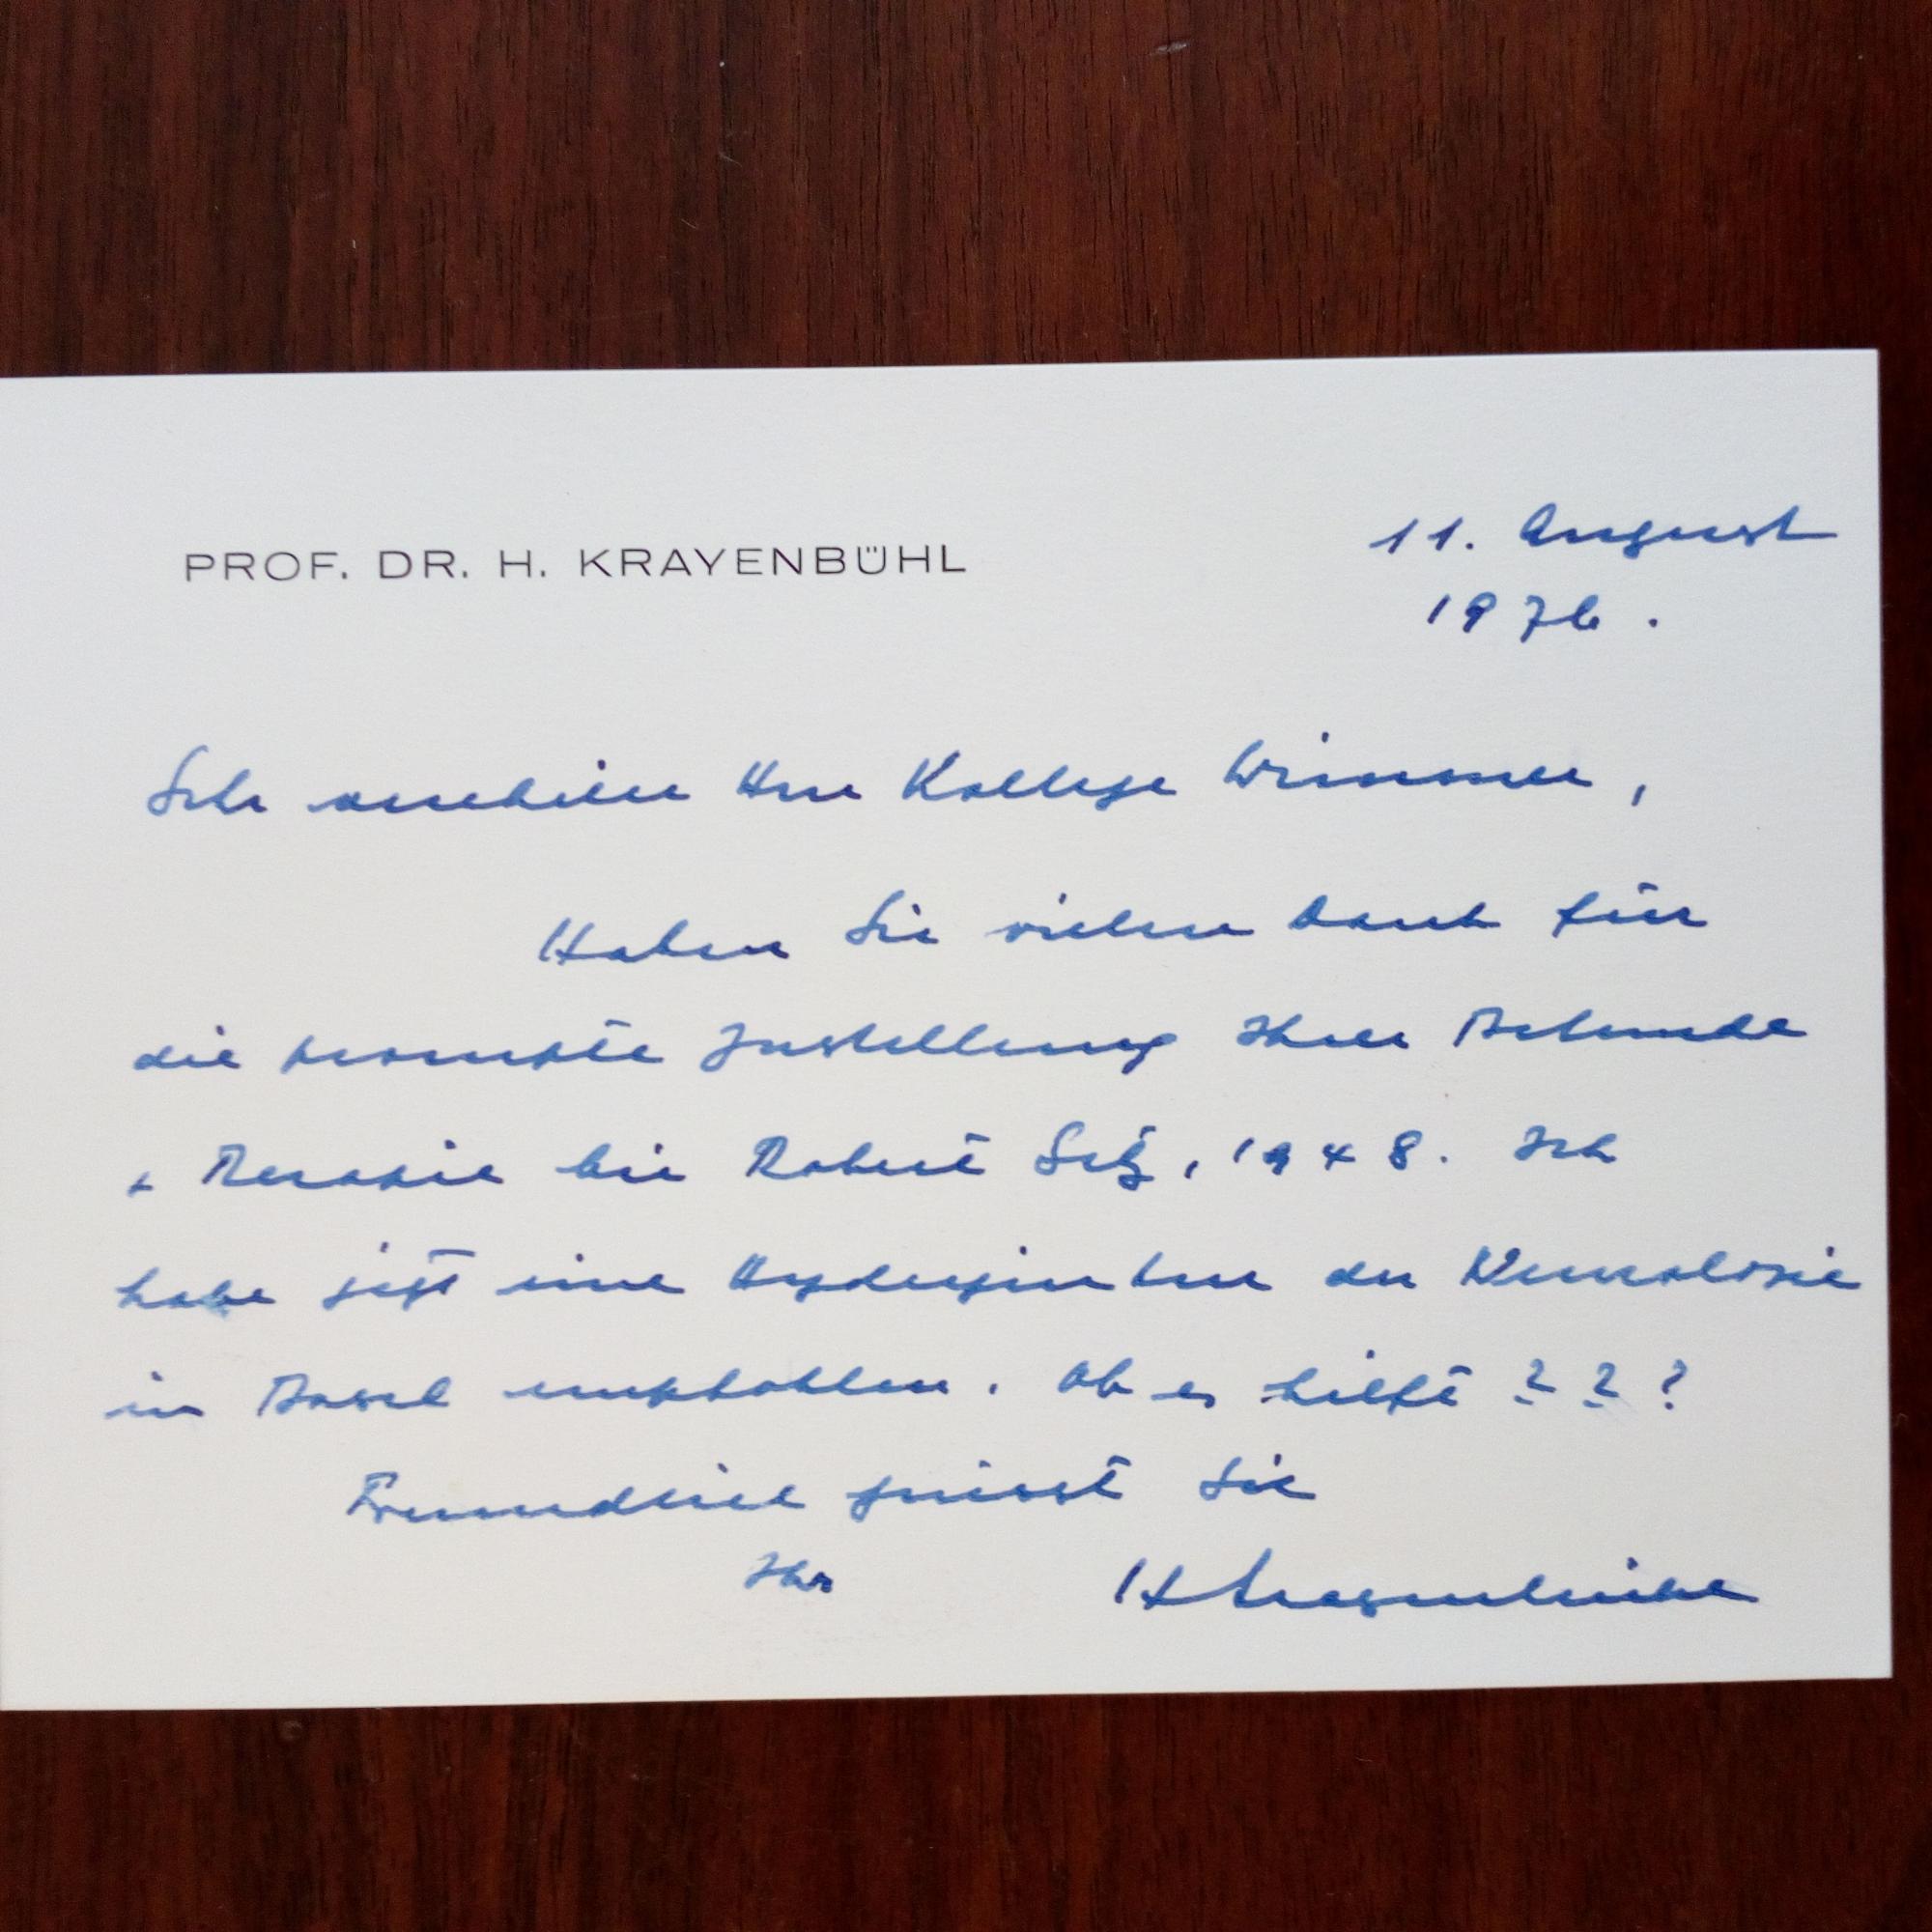 PROF. DR. H. KRAYENBÜHL
11. August
1976.
Sehr verehrter Herr Kollege Wimmer,
Haben Sie vielen Dank für
die prompte Zustellung Ihrer Befunde
+ Therapie bei Robert 1948. Ich
habe jetzt eine der Neurologie
in Basel empfohlen. Ob es hilft ? ? ?
Freundlich grüsst Sie
Ihr H Krayenbühl